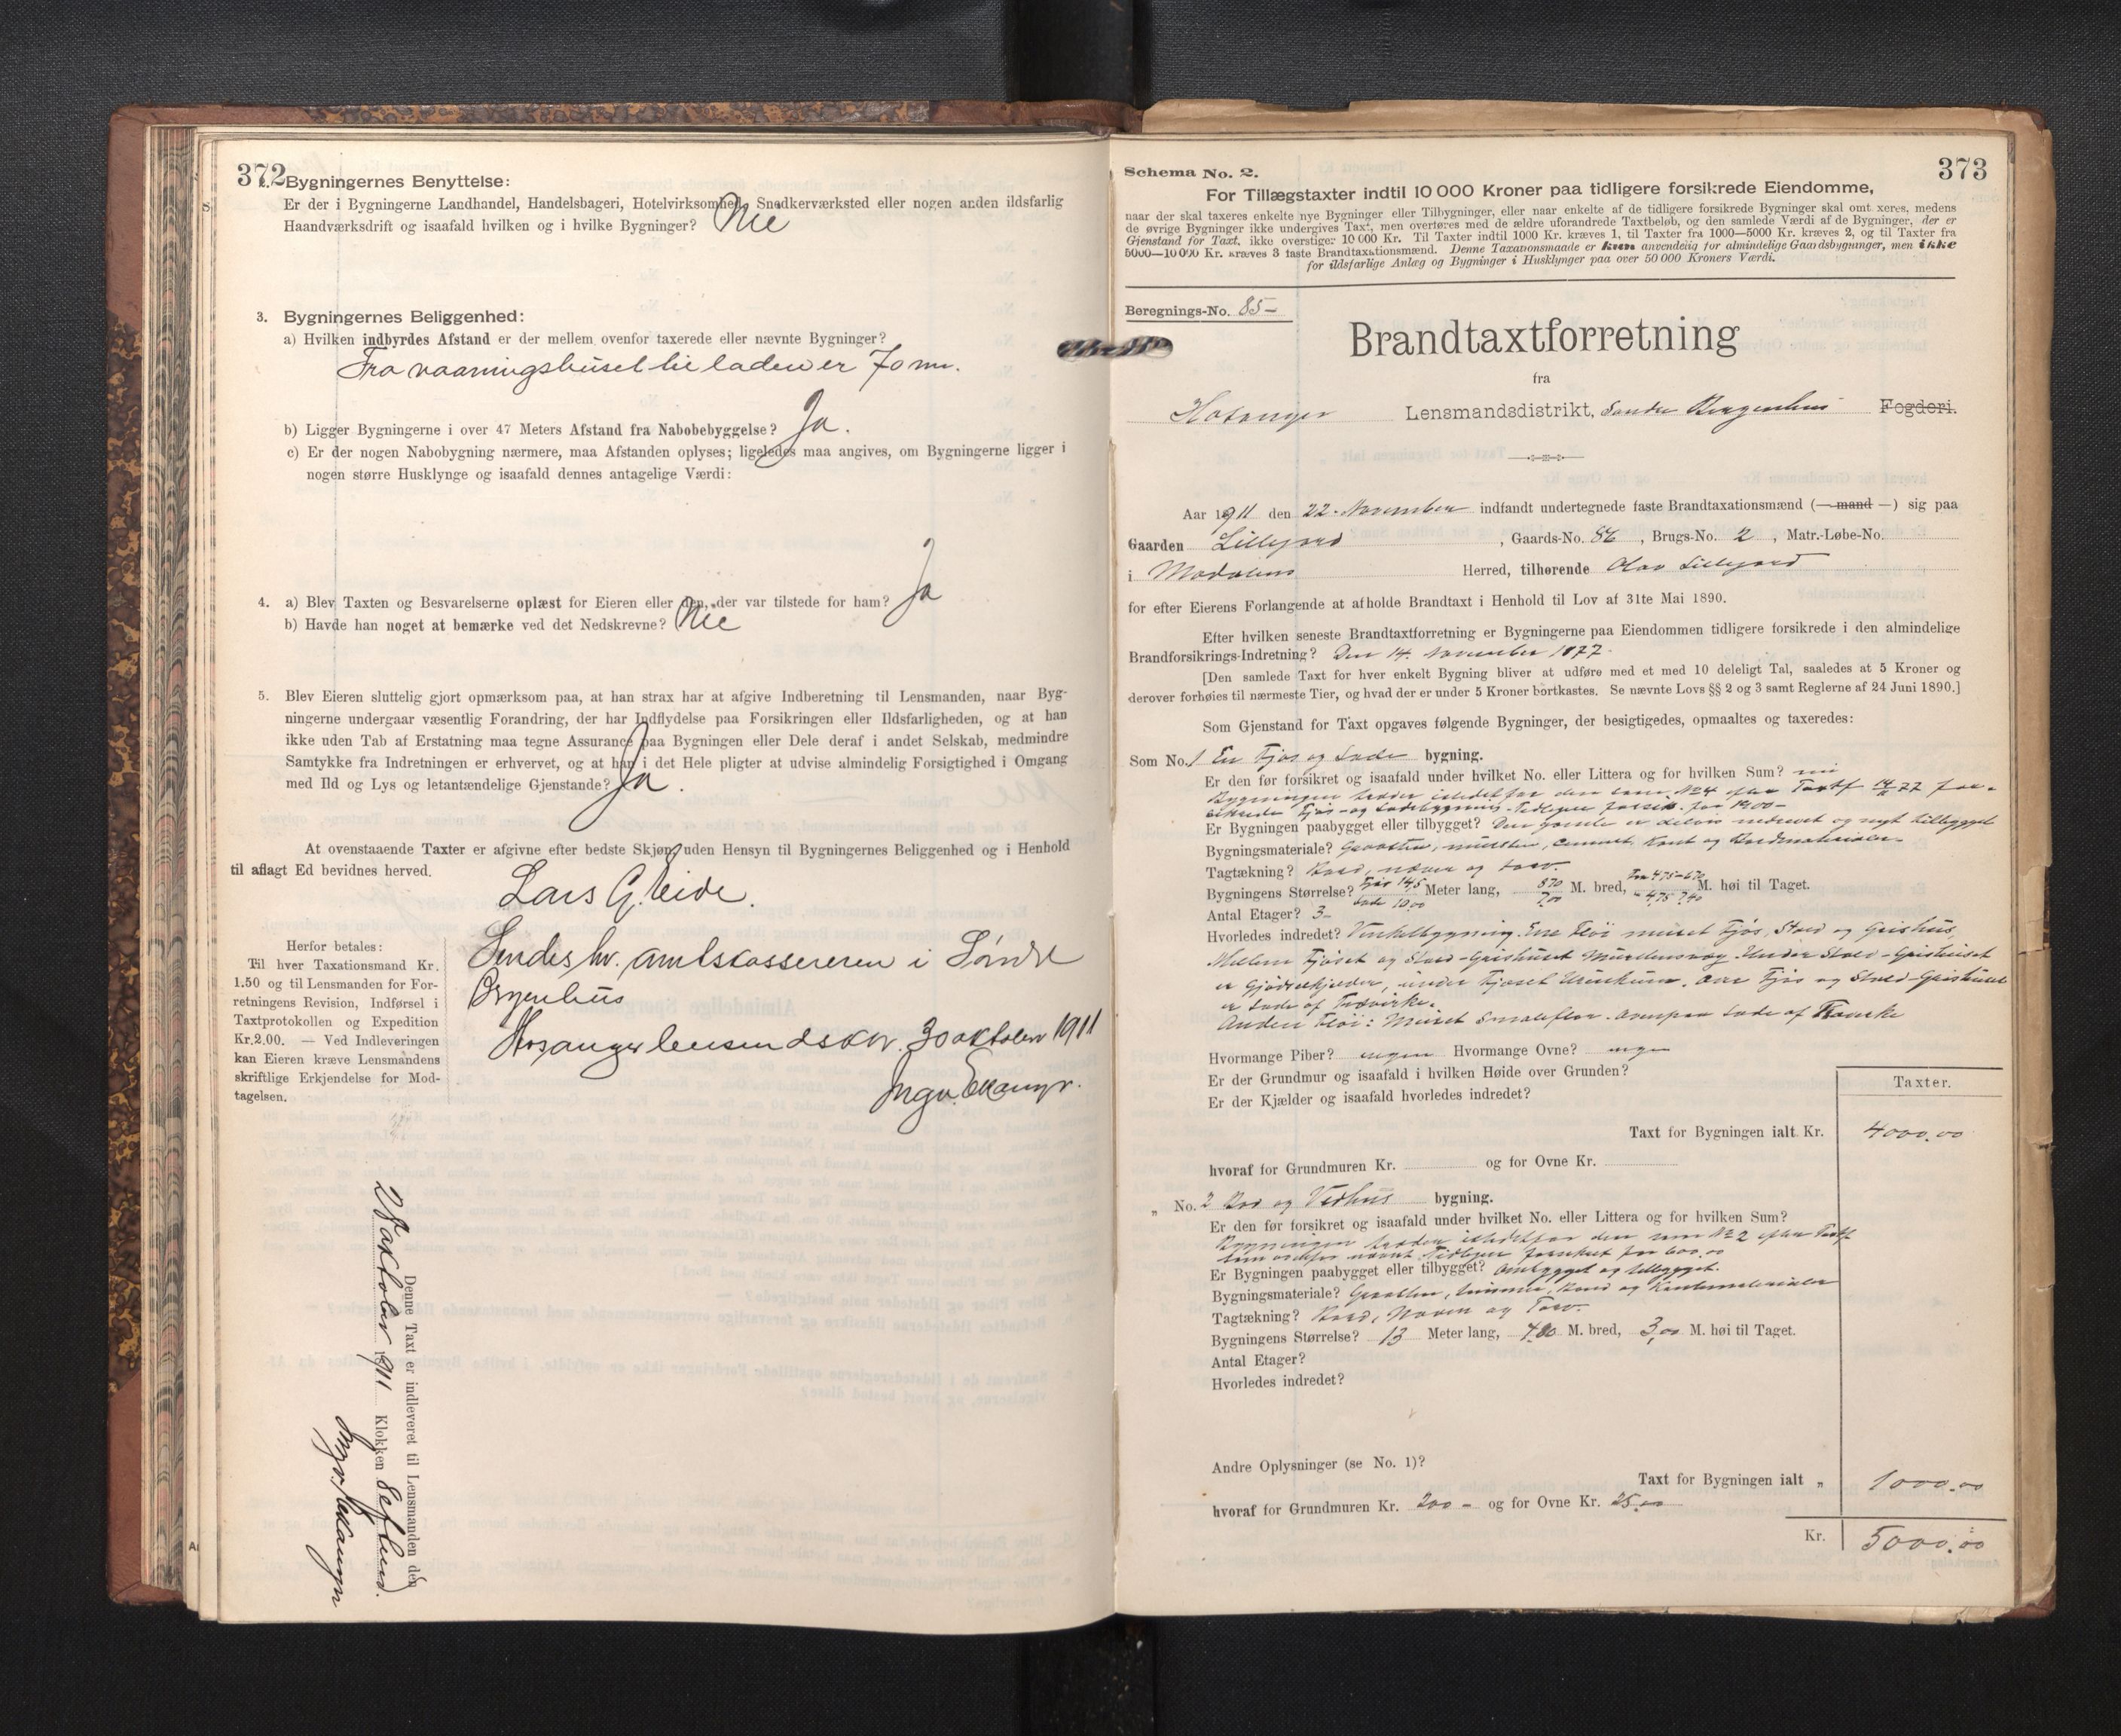 372
2. Bygningernes Benyttelse:
Er der i Bygningerne Landhandel, Handelsbageri, Hotelvirksomhed, Snedkerværksted eller nogen anden ildsfarlig
Haandværksdrift og isaafald hvilken og i hvilke Bygninger? Nei
3. Bygningernes Beliggenhed:
a) Hvilken indbyrdes Afstand er der mellem ovenfor taxerede eller nævnte Bygninger?
Fra vaaningshuset til laden er 70 m.
b) Ligger Bygningerne i over 47 Meters Afstand fra Nabobebyggelse? Ja.
c) Er der nogen Nabobygning nærmere, maa Afstanden oplyses; ligeledes maa angives, om Bygningerne ligger i
nogen større Husklynge og isaafald dennes antagelige Værdi:
4. a) Blev Taxten og Besvarelserne oplæst for Eieren eller den, der var tilstede for ham? Ja
b) Havde han noget at bemærke ved det Nedskrevne? Nei
5. Blev Eieren sluttelig gjort opmærksom paa, at han strax har at afgive Indberetning til Lensmanden, naar Byg-
ningerne undergaar væsentlig Forandring, der har Indflydelse paa Forsikringen eller Ildsfarligheden, og at han
ikke uden Tab af Erstatning maa tegne Assurance paa Bygningen eller Dele deraf i andet Selskab, medmindre
Samtykke fra Indretningen er erhvervet, og at han i det Hele pligter at udvise almindelig Forsigtighed i Omgang
med Ild og Lys og letantændelige Gjenstande? Ja.
At ovenstaaende Taxter er afgivne efter bedste Skjøn uden Hensyn til Bygningernes Beliggenhed og i Henhold
til aflagt Ed bevidnes herved.
Lars G. Eide.
Herfor betales:
Til hver Taxationsmand Kr.
1.50 og til Lensmanden for For-
retningens Revision, Indførsel i
Taxtprotokollen og Expedition
Kr.2.00. — Ved Indleveringen
kan Eieren kræve Lensmandens
skriftlige Erkjendelse for Mod-
tagelsen.
Sendes hr. amtskassereren i Søndre
Bergenhus
Hosanger lensmandskt. 30 oktober 1911
Ingv.
Denne Taxt er indleveret til Lensmanden den
28 oktober 1911 Klokken 8 eftmd.
Ingv.
373
Schema No. 2.
For Tillægstaxter indtil 10 000 Kroner paa tidligere forsikrede Eiendomme,
naar der skal taxeres enkelte nye Bygninger eller Tilbygninger, eller naar enkelte af de tidligere forsikrede Bygninger skal omtaxeres, medens
de øvrige Bygninger ikke undergives Taxt, men overføres med de ældre uforandrede Taxtbeløb, og den samlede Værdi af de Bygninger, der er
Gjenstand for Taxt, ikke overstiger 10 000 Kr. Til Taxter indtil 1000 Kr. kræves 1, til Taxter fra 1000—5000 Kr. kræves 2, og til Taxter fra
5000—10 000 Kr. kræves 3 faste Brandtaxationsmænd. Denne Taxationsmaade er kun anvendelig for almindelige Gaardsbygninger, men ikke
for ildsfarlige Anlæg og Bygninger i Husklynger paa over 50 000 Kroners Værdi.
Beregnings-No. 85-
Brandtaxtforretning
fra
Hosanger Lensmandsdistrikt, Søndre Bergenhus Fogderi.
Aar 1911 den 22. November indfandt undertegnede faste Brandtaxationsmænd (—mand —) sig paa
Gaarden Lillejord, Gaards-No. 86, Brugs-No. 2, Matr.-Løbe-No.
i Modalens Herred, tilhørende Olav Lillejord
for efter Eierens Forlangende at afholde Brandtaxt i Henhold til Lov af 31te Mai 1890.
Efter hvilken seneste Brandtaxtforretning er Bygningerne paa Eiendommen tidligere forsikrede i den almindelige
Brandforsikrings-Indretning? Den 14. November 1877.
[Den samlede Taxt for hver enkelt Bygning bliver at udføre med et med 10 deleligt Tal, saaledes at 5 Kroner og
derover forhøies til nærmeste Tier, og hvad der er under 5 Kroner bortkastes. Se nævnte Lovs §§ 2 og 3 samt Reglerne af 24 Juni 1890.]
Som Gjenstand for Taxt opgaves følgende Bygninger, der besigtigedes, opmaaltes og taxeredes:
Som No. 1 En Fjøs og Lade bygning.
Er den før forsikret og isaafald under hvilket No. eller Littera og for hvilken Sum?
Bygningen træder istedetfor den som No 4 efter Taxtf 14/11 77 for-
sikrede Fjøs- og Ladebygning. Tidligere forsik. for
Er Bygningen paabygget eller tilbygget? Den gamle er delvis nedrevet og nyt tilbygget
Bygningsmateriale? Graasten, mursten, cement, Kant og Bordmaterialer
Tagtækning? Bord, næver og torv.
Bygningens Størrelse? Fjøs 14,5 Meter lang, 8,70 M. bred, Fra 4,75-6,70 M. høi til Taget.
Lade 10,00 7,00 - 4,75 7,40
Antal Etager? 3-
Hvorledes indredet? Vinkelbygning. Ene Fløi muret Fjøs, Stald og Grishus,
Mellem Fjøset og Stald-Grishuset Murdensvæg. Under Stald-Grishuset
er Gjødselkjelder, under Fjøset Urinkum. Over Fjøs og Stald-Grishuset
er Lade af Træverke.
Anden Fløi: Muret Smalefloor. Ovenpaa Lade af Træverke
Hvormange Piber? ingen Hvormange Ovne? ingen
Er der Grundmur og isaafald i hvilken Høide over Grunden?
Er der Kjælder og isaafald hvorledes indredet?
Taxter.
Taxt for Bygningen ialt Kr. 4000,00
hvoraf for Grundmuren Kr. og for Ovne Kr.
" No. 2 Bod og Vedhus bygning.
Er den før forsikret og isaafald under hvilket No. eller Littera og for hvilken Sum?
Bygningen træder istedetfor den som No 2 efter Taxtf
som ovenfor nævnt. Tidligere forsikret for 600,00
Er Bygningen paabygget eller tilbygget? Ombygget og tilbygget.
Bygningsmateriale? Graasten, tømmer, Bord og Kantematerialer
Tagtækning? Bord, Næver og Torv.
Bygningens Størrelse? 13 Meter lang, 4,80 M. bred, 3,00 M. høi til Taget.
Antal Etager?
Hvorledes indredet?
Andre Oplysninger (se No. 1)?
Taxt for Bygningen ialt " 1000,00
hvoraf for Grundmuren Kr. 200 - og for Ovne Kr. 25,00
Kr. 5000,00